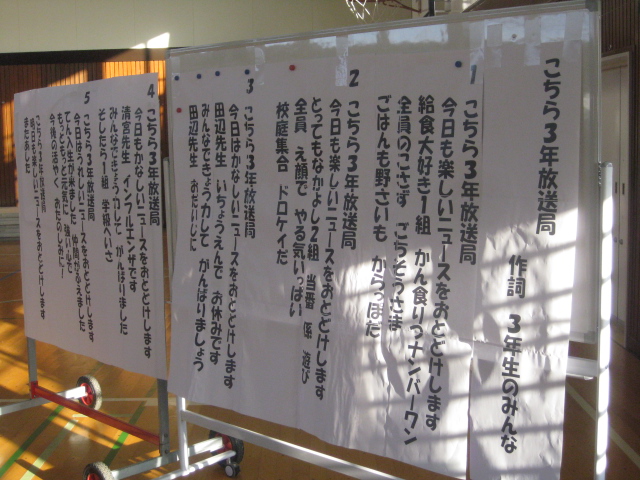 こちら3年放送局
作詞 3年生のみんな
1 こちら3年放送局
今日も楽しいニュースをおとどけします
給食大好き1組 かん食りつナンバーワン
全員のこさず ごちそうさま
ごはんも野さいも からっぽだ
2 こちら3年放送局
今日も楽しいニュースをおとどけします
とってもなかよし2組 当番 係 遊び
全員 え顔で やる気いっぱい
校庭集合 ドロケイだ
3 こちら3年放送局
今日はかなしいニュースをおとどけします
田辺先生 いちょうえんで お休みです
みんなできょう力して がんばりましょう
田辺先生 おだいじに
4 こちら3年放送局
今日もかなしいニュースをおとどけします
清宮先生 インフルエンザです
みんなできょう力して がんばりました
そしたら1組 学級へいさ
5 こちら3年放送局
今日はうれしいニュースをおとどけします
てん入生が来ました 仲間がふえました
もっともっと元気に 強い心で
今後の活やく おたのしみに!
こちら3年放送局
明日も楽しいニュースをおとどけします